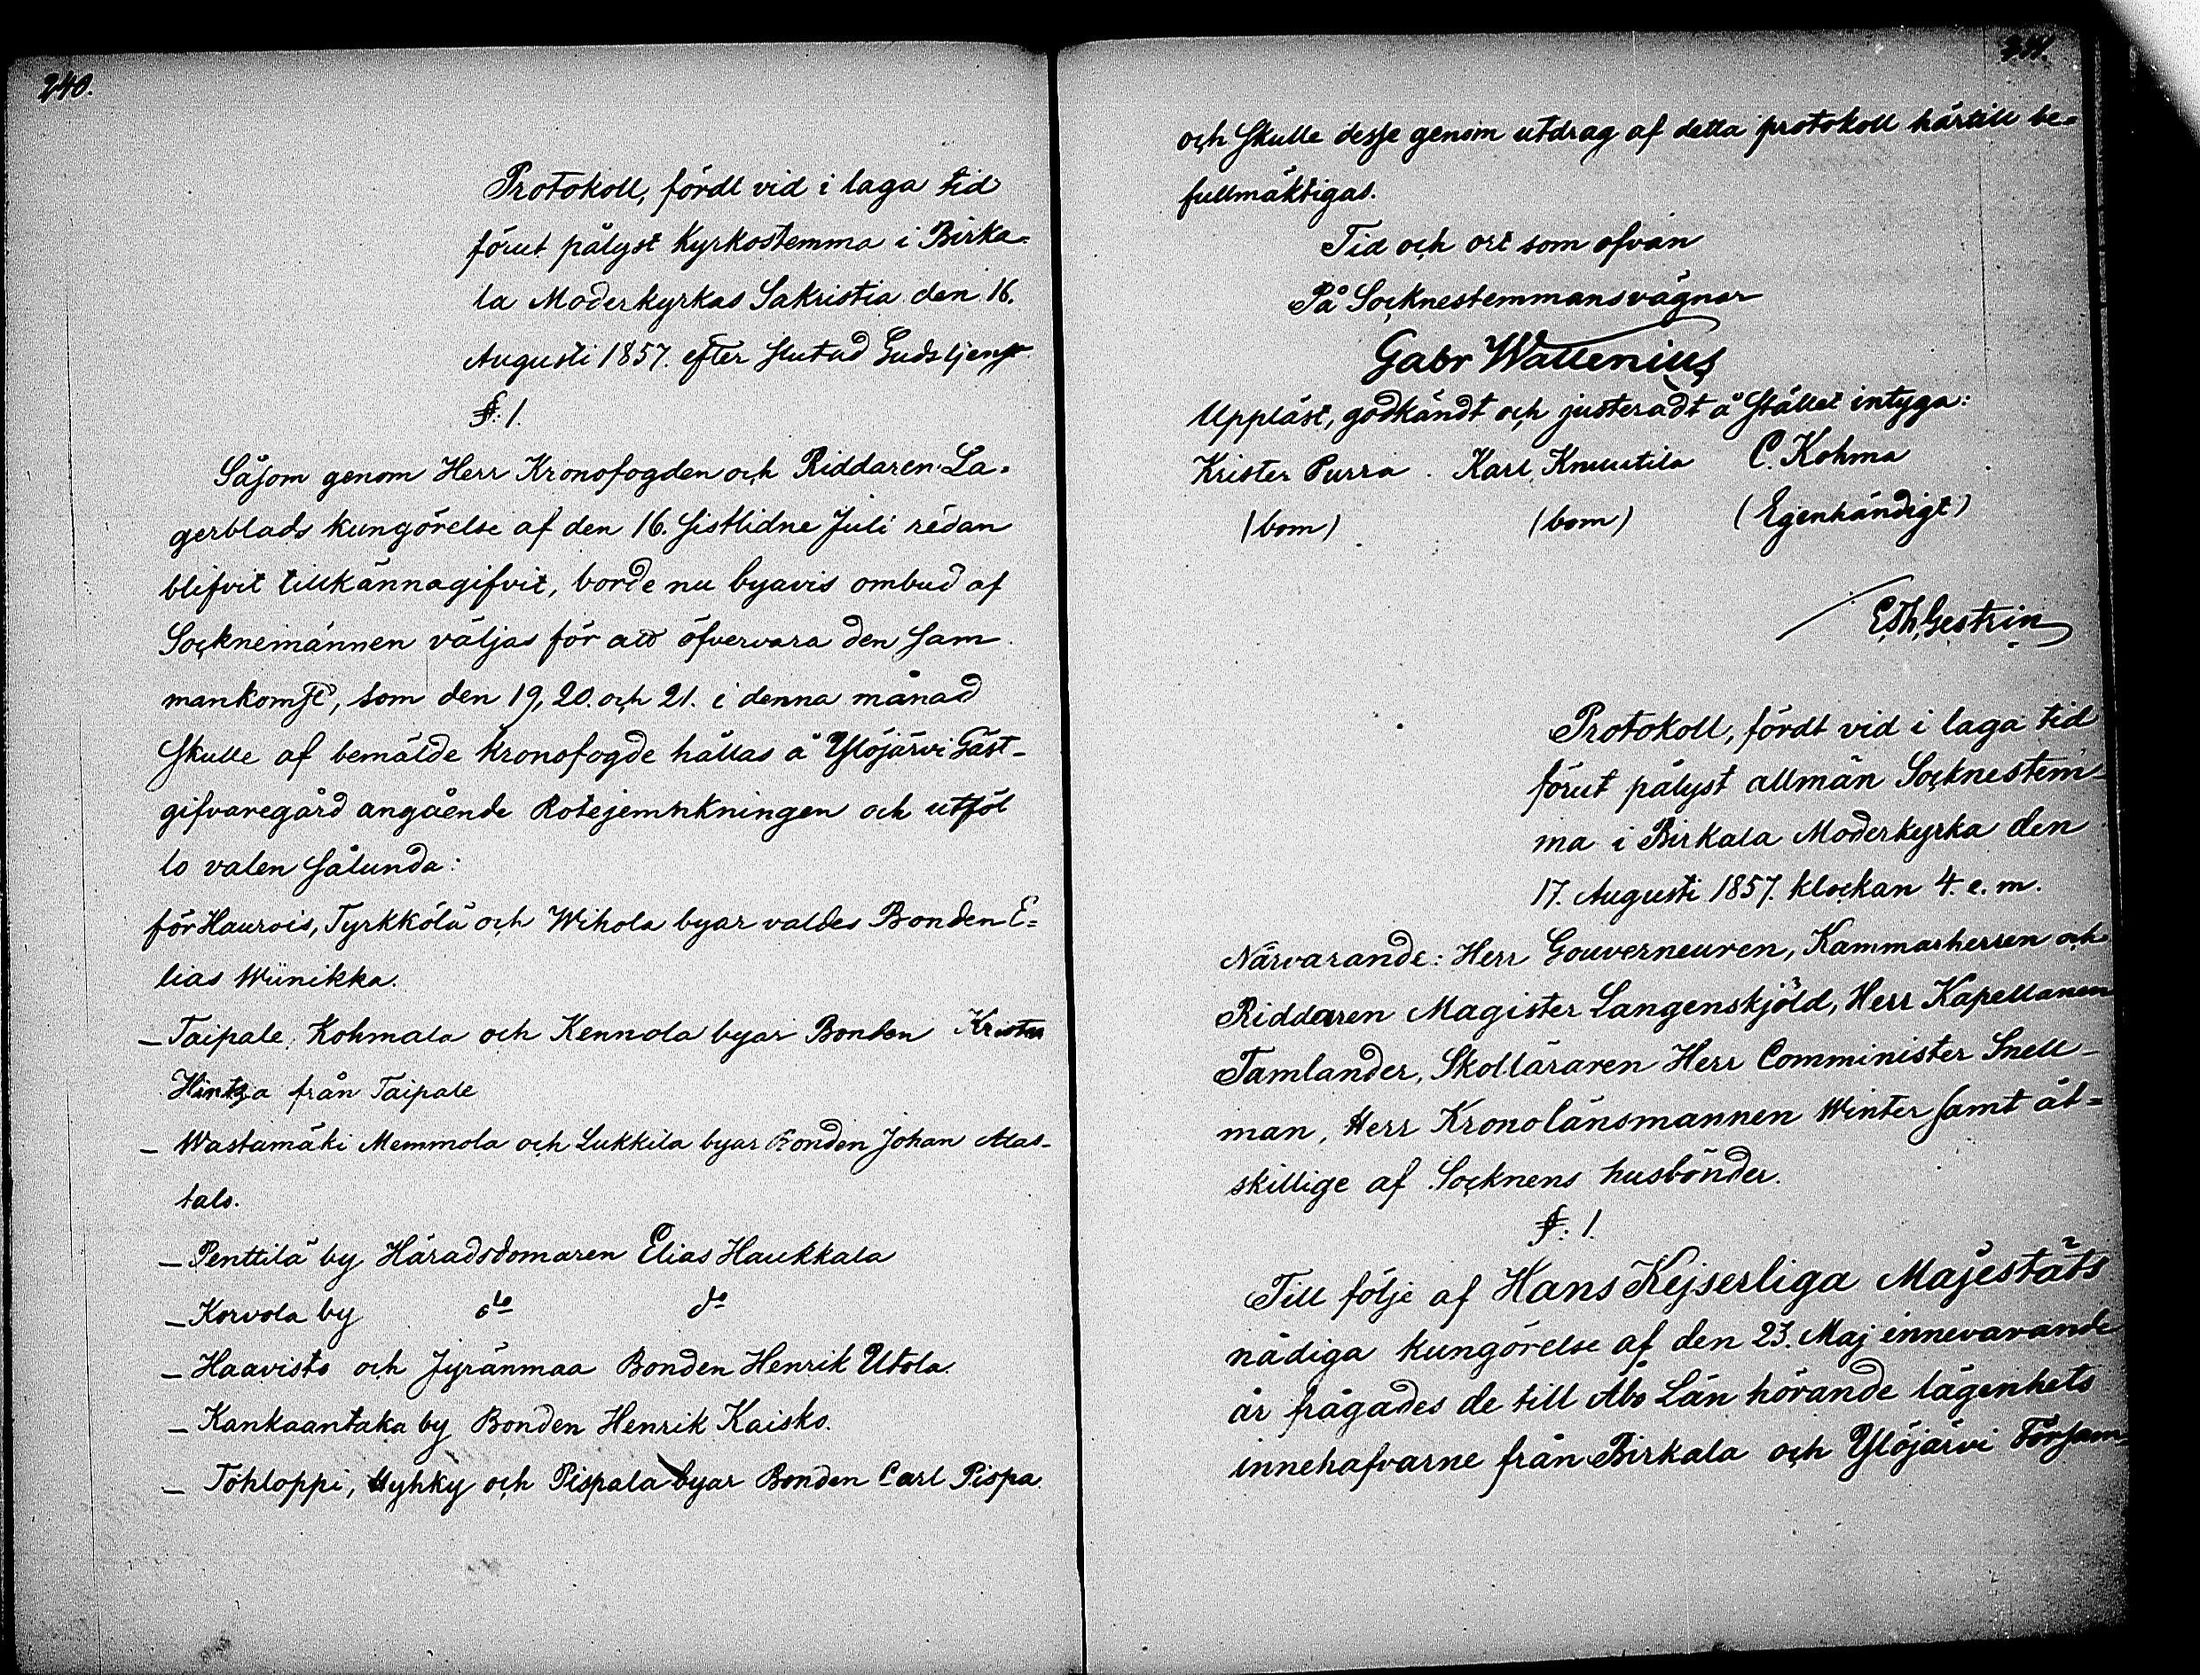 240.
Protokoll, fördt vid i laga tid
förut pålyst Kyrkostemma i Birka=
la Moderkyrkas Sakristia den 16.
Augusti 1857. efter slutad Gudstjenst
§. 1.
Såsom genom Herr Kronofogden och Riddaren La=
gerblads kungörelse af den 16. sistlidne Juli redan
blifvit tillkännagifvit, borde nu byavis ombud af
Socknemännen väljas för att öfvervara den sam
mankomst, som den 19, 20. och 21. i denna månad
skulle af bemälde kronofogde hållas å Ylöjärvi Gäst-
gifvaregård angående Rotejemnkningen och utföl
lo valen sålunda:
för Haurois, Tyrkkölä och Wihola byar valdes Bonden E=
lias Wiinikka.
– Taipale, Kohmala och Kennola byar Bonden Krister
Hintsa från Taipale
– Wastamäki Memmola och Lukkila byar Bonden Johan Alas-
talo.
– Penttilä by Häradsdomaren Elias Haukkala
– Korvola by do do
– Haavisto och Jyränmaa Bonden Henrik Utola.
– Kankaantaka by Bonden Henrik Kaisko.
– Tohloppi, Hyhky och Pispala byar Bonden Carl Pispa.
241.
och skulle desse genom utdrag af detta protokoll härtill be=
fullmäktigas.
Tid och ort som ofvan
På Socknestemmans vägnar
Gabr Wallenius
Uppläst, godkändt och justeradt å stället intyga:
Krister Purra. Karl Knuutila C. Kohma
(bom) (bom) (Egenhändigt)
E,Th,Gestrin
Protokoll, fördt vid i laga tid
förut pålyst allmän Socknestem-
ma i Birkala Moderkyrka den
17. Augusti 1857. klockan 4. e. m.
Närvarande: Herr Gouverneuren, Kammarherren och
Riddaren Magister Langenskjöld, Herr Kapellanen
Tamlander, Skolläraren Herr Comminister Snell-
man, Herr Kronolänsmannen Winter samt åt=
skillige af Socknens husbönder.
§. 1.
Till följe af Hans Kejserliga Majestäts
nådiga kungörelse af den 23. Maj innevarande
år frågades de till Åbo Län hörande lägenhets
innehafvarne från Birkala och Ylöjärvi Församm